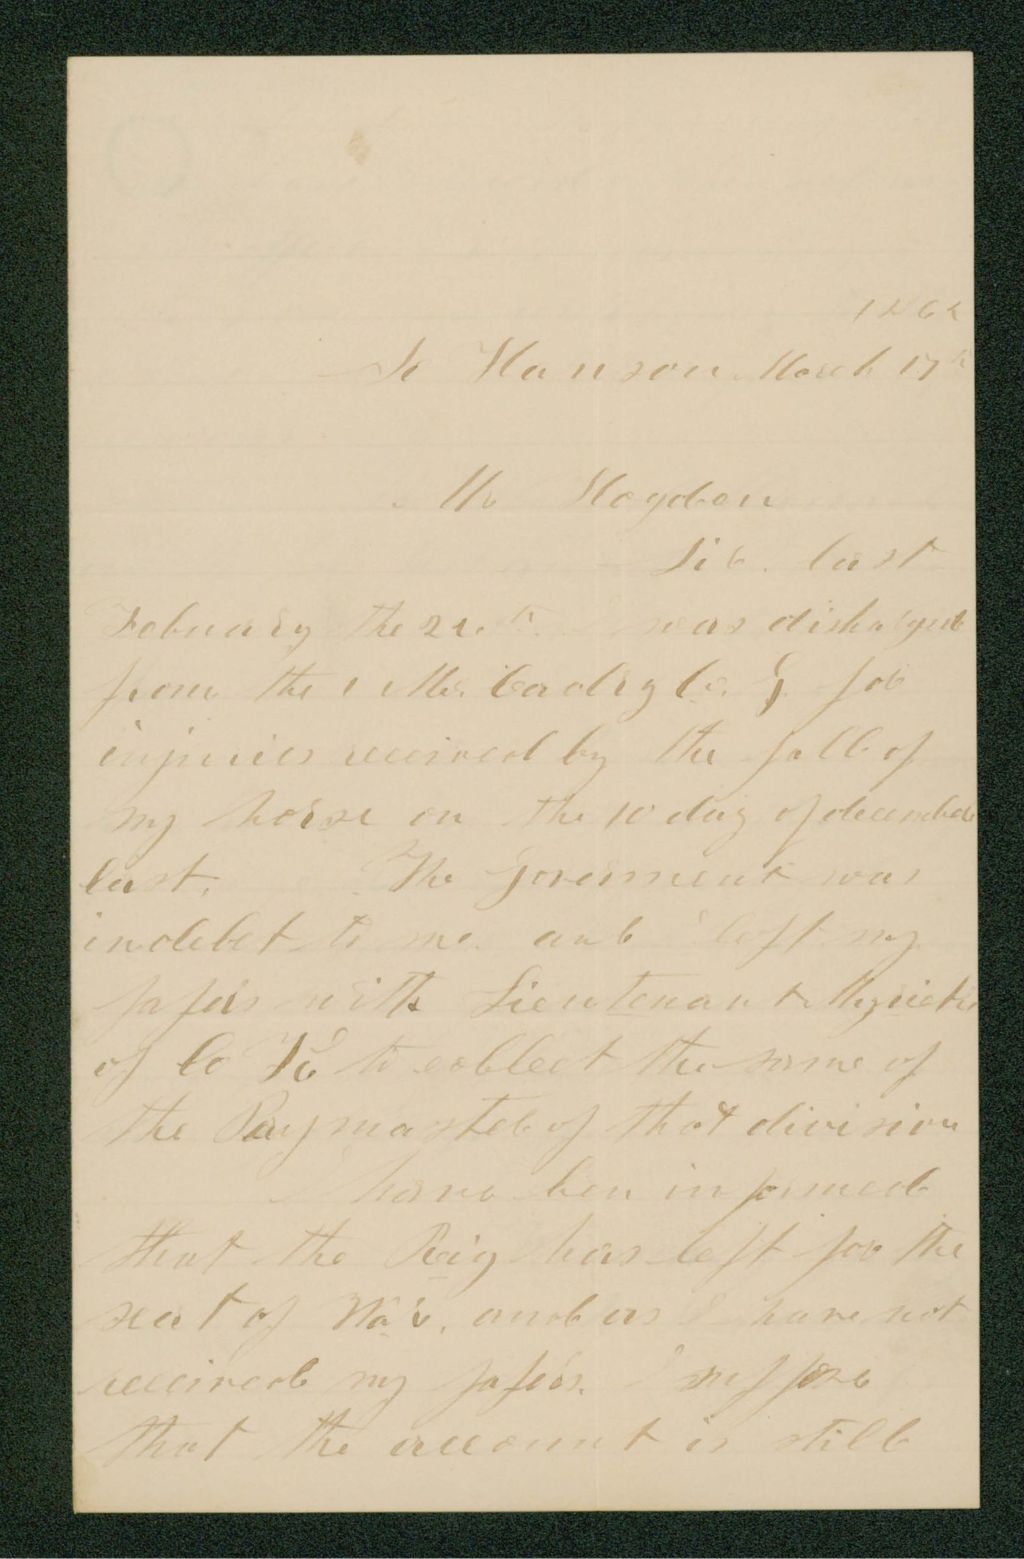 1862
So Hanson March 17th
Mr Hoyden
Sir. last
Febuary the 24th I was disharged
from the 1 Me. Cavalry Co. G for
injuries received by the fall of
my horse on the 10 day of december
last. The Goverment was
indebt to me and I left my
papers with Lieutenant Myrick
of Co to collect the same of
the Paymaster of that division
I have ben informed
that the Reig has left for the
seat of War. and as I have not
received my papers. I suppose
that the account is still